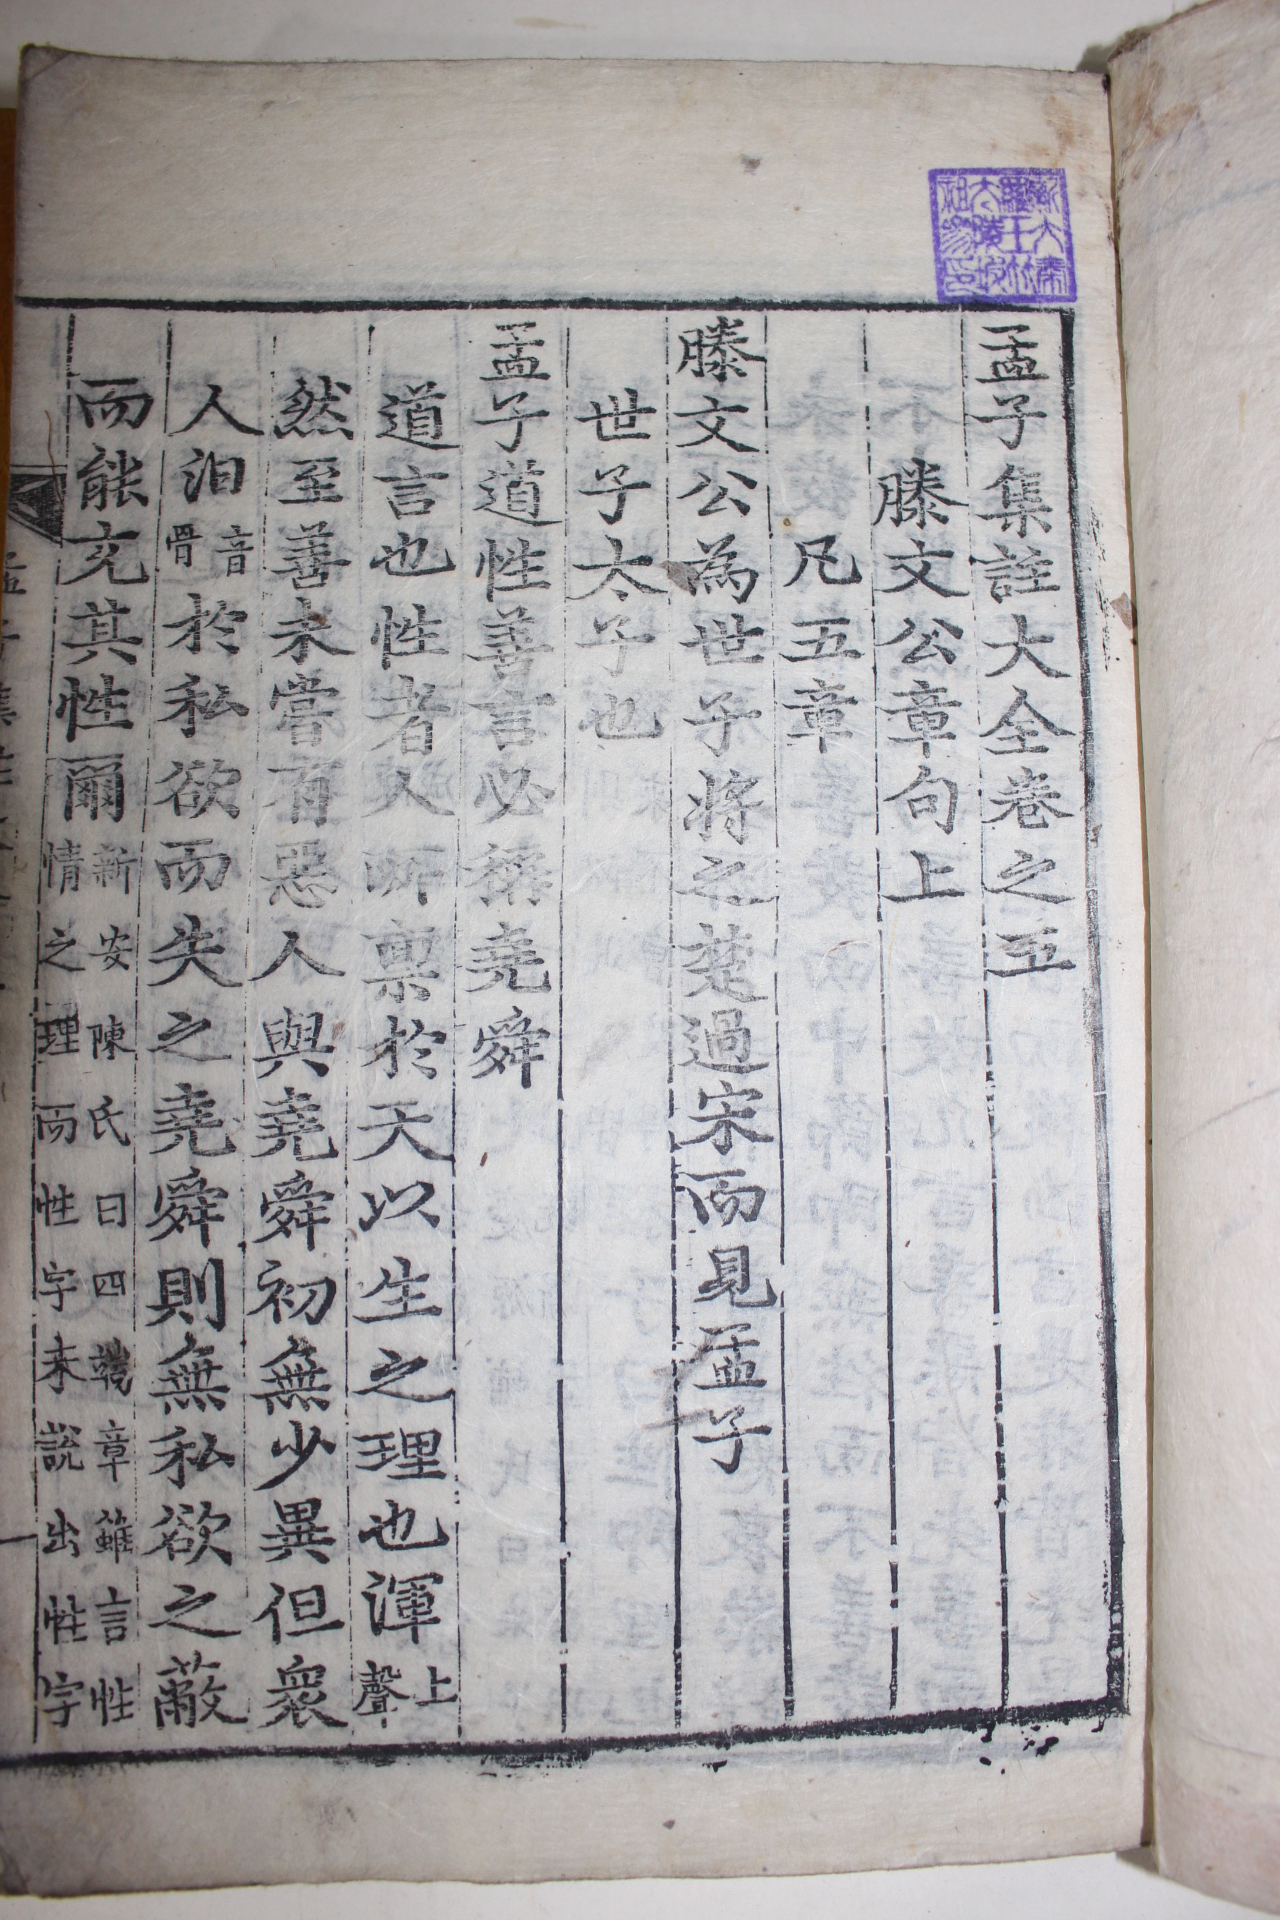 孟子集註大全卷之五
滕文公章句上
凡五章
滕文公為世子將之楚過宋而見孟子
世子太子也
孟子道性善言必稱堯舜
道言也性者人所稟於天以生之理也渾上聲
然至善未嘗有惡人與堯舜初無少異但衆
人汩音骨於私欲而失之堯舜則無私欲之蔽
而能充其性爾新安陳氏曰四端章雖言性情之理而性字未說出性字